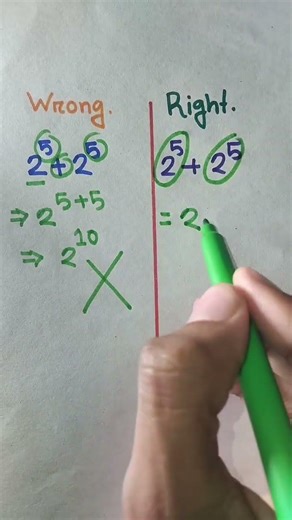 Wrong.
2⁵ + 2⁵
⇒ 2⁵⁺⁵
⇒ 2¹⁰
Right.
2⁵ + 2⁵
= 2.